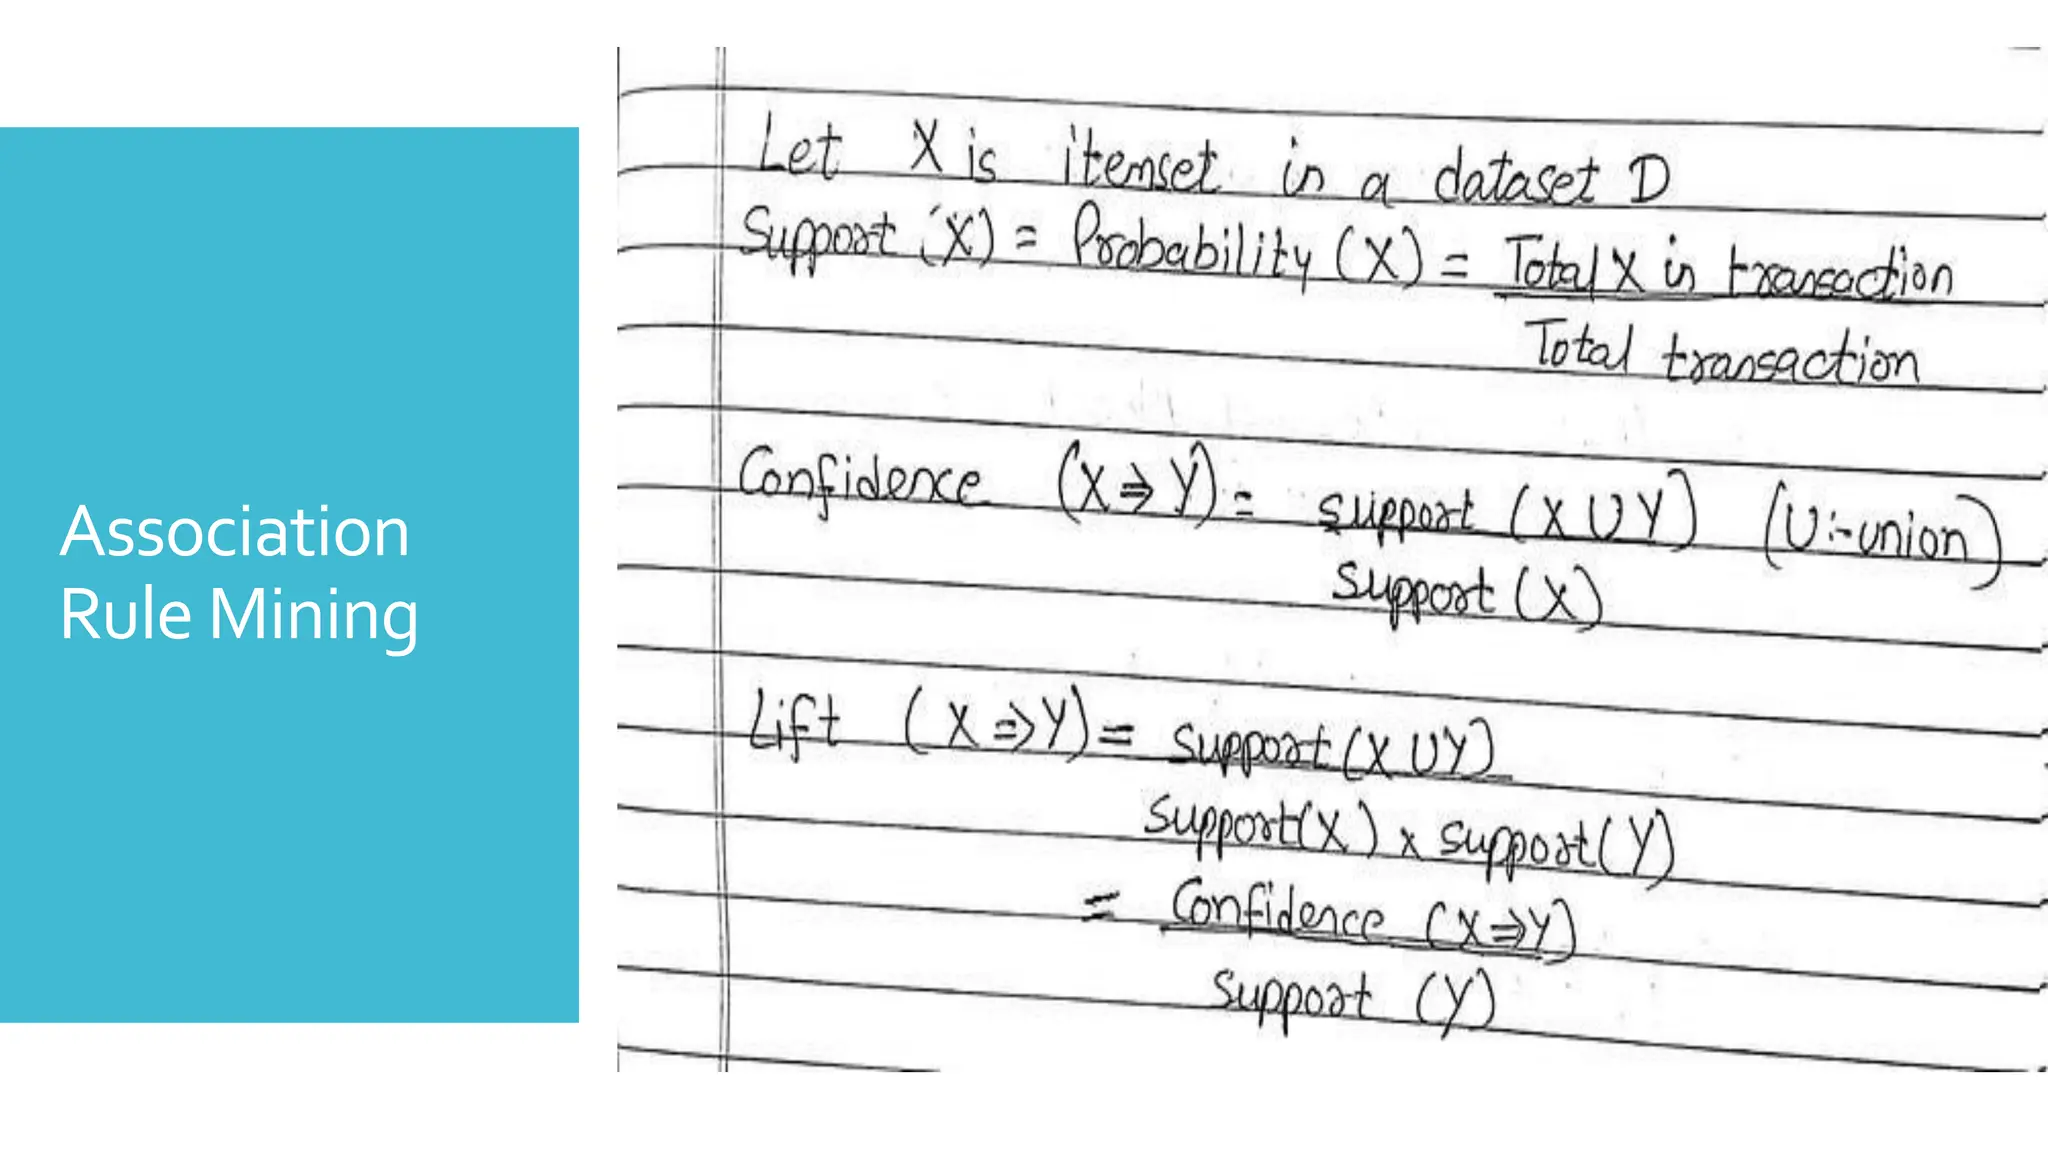 Association
Rule Mining
Let X is itemset in a dataset D
Support (X) = Probability (X) = Total X in transaction
Total transaction
Confidence (X ⇒ Y) = support (X U Y) (U:-union)
Support (X)
Lift (X ⇒ Y) = Support (X U Y)
Support(X) x support(Y)
= Confidence (X ⇒ Y)
Support (Y)